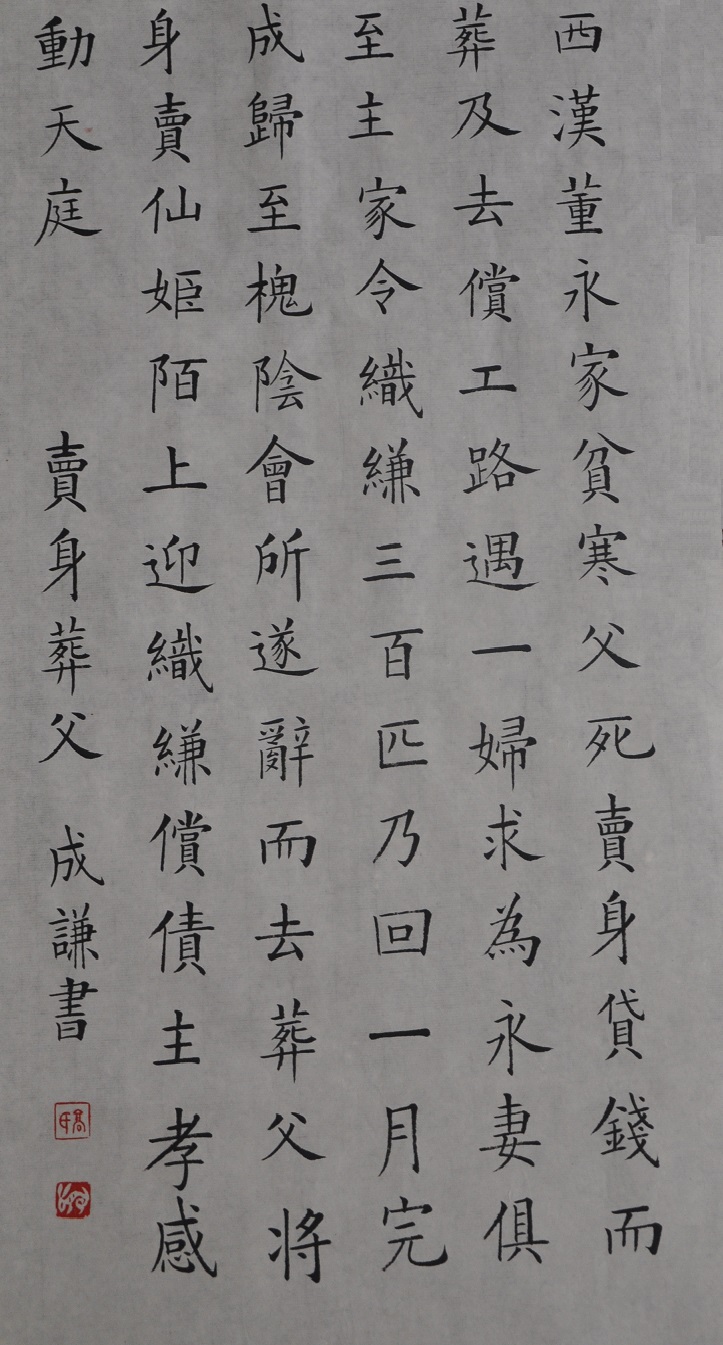 西漢董永家貧寒父死賣身貸錢而
葬及去償工路遇一婦求為永妻俱
至主家令織縑三百匹乃回一月完
成歸至槐陰會所遂辭而去葬父將
身賣仙姬陌上迎織縑償債主孝感
動天庭
賣身葬父
成謙書